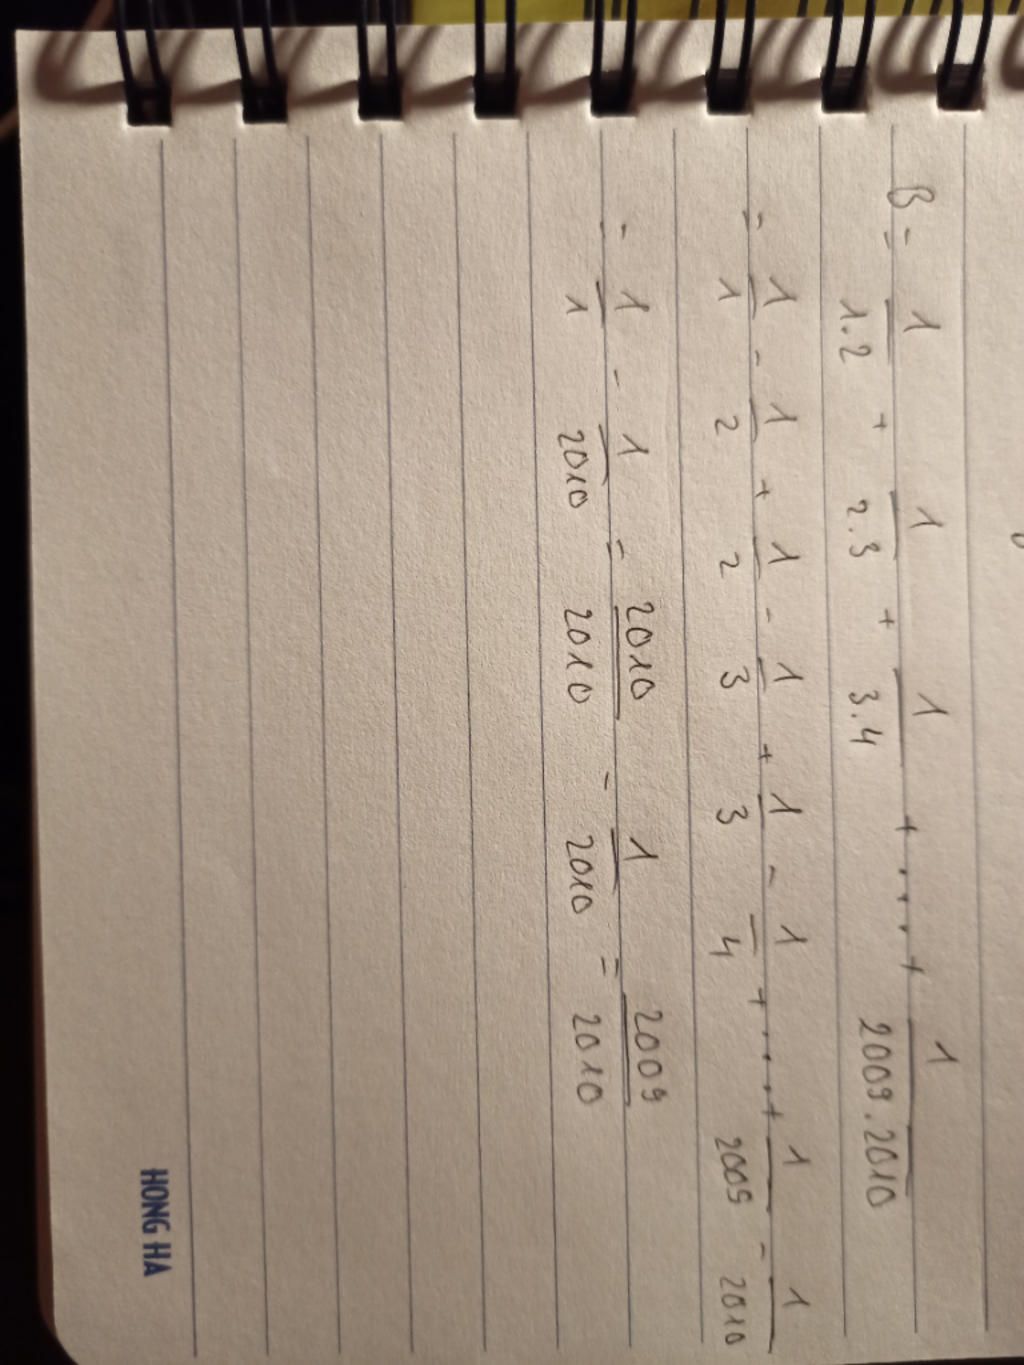 B = 1/1.2 + 1/2.3 + 1/3.4 + .... + 1/2009.2010
= 1/1 - 1/2 + 1/2 - 1/3 + 1/3 - 1/4 + .... + 1/2009 - 1/2010
= 1/1 - 1/2010 = 2010/2010 - 1/2010 = 2009/2010
HONG HA